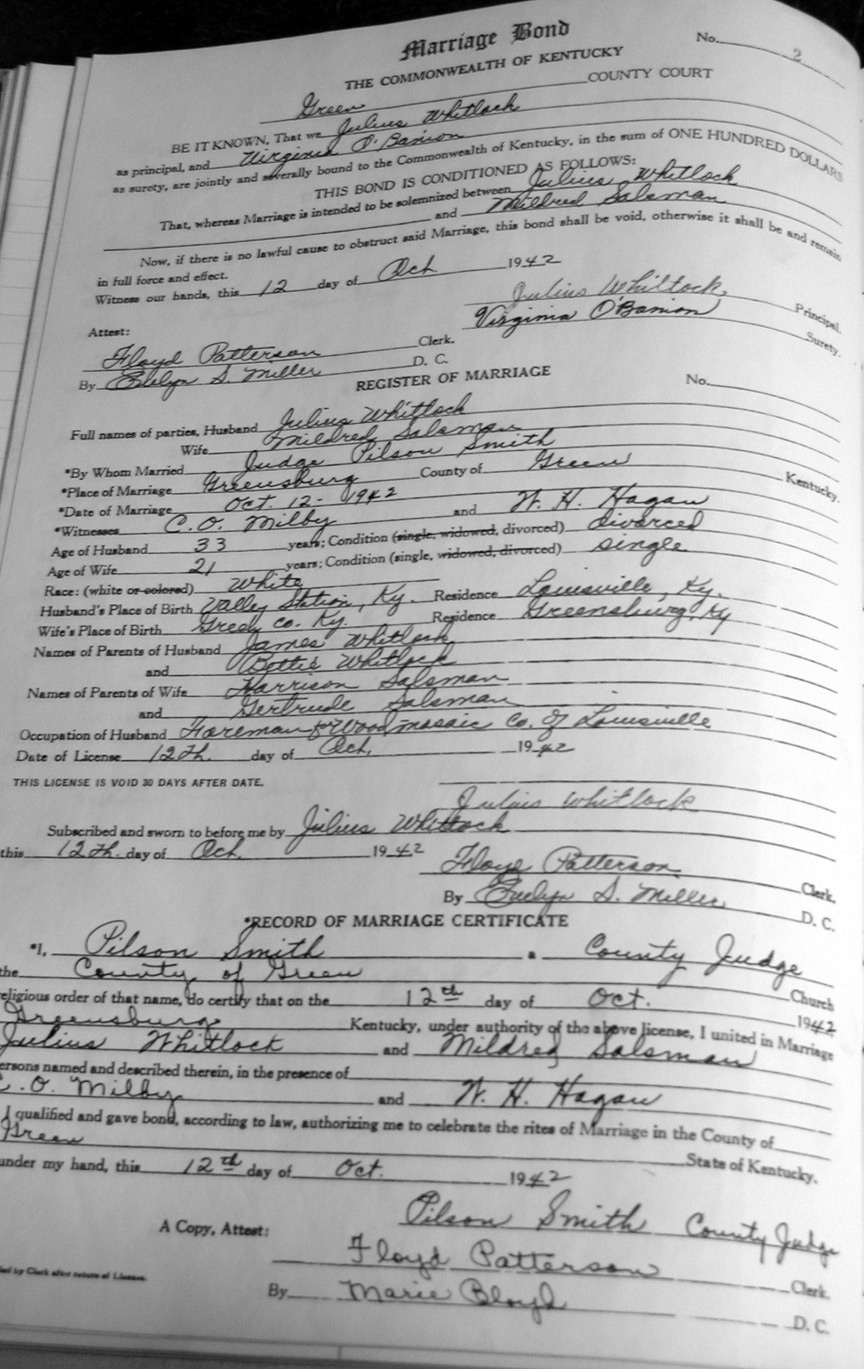 Marriage Bond
No. 2
THE COMMONWEALTH OF KENTUCKY
Green COUNTY COURT
BE IT KNOWN, That we Julius Whitlock
as principal, and Virginia O'Banion
as surety, are jointly and severally bound to the Commonwealth of Kentucky, in the sum of ONE HUNDRED DOLLARS
THIS BOND IS CONDITIONED AS FOLLOWS:
That, whereas Marriage is intended to be solemnized between Julius Whitlock
and Mildred Salsman
Now, if there is no lawful cause to obstruct said Marriage, this bond shall be void, otherwise it shall be and remain
in full force and effect.
Witness our hands, this 12 day of Oct 1942
Julius Whitlock Principal.
Virginia O'Banion Surety.
Attest:
Floyd Patterson Clerk.
By Evelyn S. Miller D. C.
REGISTER OF MARRIAGE No.
Full names of parties, Husband Julius Whitlock
Wife Mildred Salsman
*By Whom Married Judge Pilson Smith
*Place of Marriage Greensburg County of Green Kentucky.
*Date of Marriage Oct. 12 - 1942
*Witnesses C. O. Milby and W. H. Hagan
Age of Husband 33 years; Condition (single, widowed, divorced) divorced
Age of Wife 21 years; Condition (single, widowed, divorced) single
Race: (white or colored) White
Husband's Place of Birth Valley Station, Ky. Residence Louisville, Ky.
Wife's Place of Birth Green Co. Ky. Residence Greensburg, Ky
Names of Parents of Husband James Whitlock
and Bottie Whitlock
Names of Parents of Wife Harrison Salsman
and Gertrude Salsman
Occupation of Husband Foreman for Wood mosaic Co. of Louisville
Date of License 12th. day of Oct. 1942
THIS LICENSE IS VOID 30 DAYS AFTER DATE.
Julius Whitlock
Subscribed and sworn to before me by Julius Whitlock
this 12th. day of Oct. 1942
Floyd Patterson Clerk.
By Evelyn S. Miller D. C.
*RECORD OF MARRIAGE CERTIFICATE
*I, Pilson Smith a County Judge
the County of Green Church
religious order of that name, do certify that on the 12th day of Oct. 1942
Greensburg Kentucky, under authority of the above license, I united in Marriage
Julius Whitlock and Mildred Salsman
ersons named and described therein, in the presence of
C. O. Milby and W. H. Hagan
I qualified and gave bond, according to law, authorizing me to celebrate the rites of Marriage in the County of
Green State of Kentucky.
under my hand, this 12th day of Oct. 1942
Pilson Smith County Judge
A Copy, Attest:
Floyd Patterson Clerk.
led by Clerk after return of License.
By Marie Bloyd D. C.